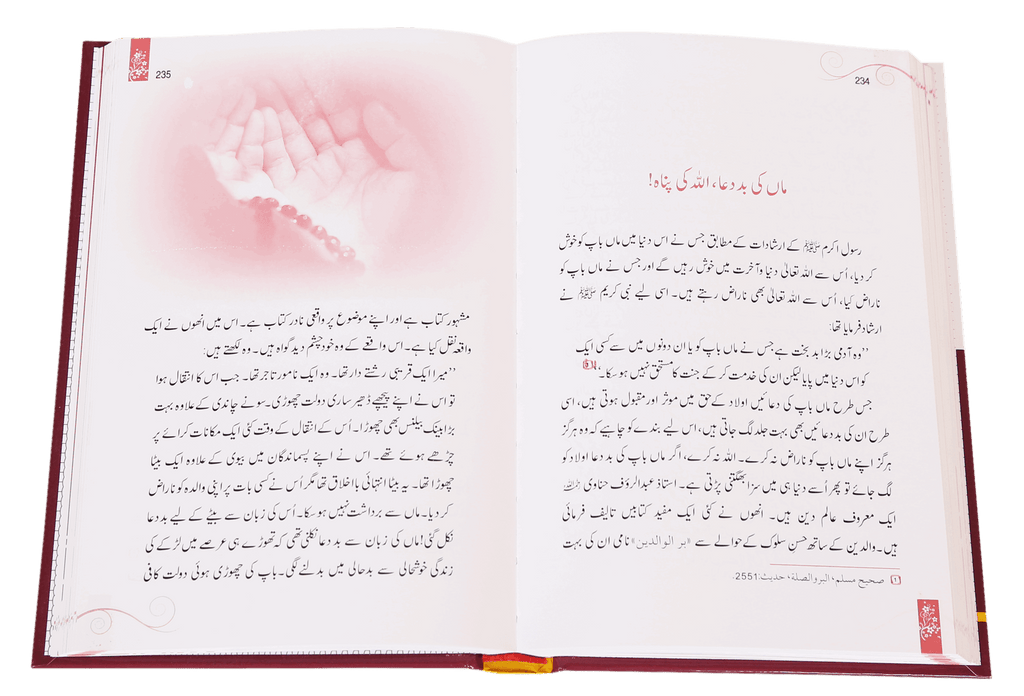 234
ماں کی بددعا، اللہ کی پناہ!
رسول اکرم ﷺ کے ارشادات کے مطابق جس نے اس دنیا میں ماں باپ کو خوش
کر دیا، اُس سے اللہ تعالیٰ دنیا و آخرت میں خوش رہیں گے اور جس نے ماں باپ کو
ناراض کیا، اُس سے اللہ تعالیٰ بھی ناراض رہتے ہیں۔ اسی لیے نبی کریم ﷺ نے
ارشاد فرمایا تھا:
’’وہ آدمی بڑا بد بخت ہے جس نے ماں باپ کو یا ان دونوں میں سے کسی ایک
کو اس دنیا میں پایا لیکن ان کی خدمت کر کے جنت کا مستحق نہیں ہو سکا۔‘‘
جس طرح ماں باپ کی دعائیں اولاد کے حق میں موثر اور مقبول ہوتی ہیں، اسی
طرح ان کی بددعائیں بھی بہت جلد لگ جاتی ہیں، اس لیے بندے کو چاہیے کہ وہ ہرگز
ہرگز اپنے ماں باپ کو ناراض نہ کرے۔ اللہ نہ کرے، اگر ماں باپ کی بددعا اولاد کو
لگ جائے تو پھر اُسے دنیا ہی میں سزا بھگتنی پڑتی ہے۔ استاذ عبدالرؤف حناوی رحمہ اللہ
ایک معروف عالم دین ہیں۔ انھوں نے کئی ایک مفید کتابیں تالیف فرمائی
ہیں۔ والدین کے ساتھ حسنِ سلوک کے حوالے سے «بر الوالدین» نامی ان کی بہت
1 صحیح مسلم، البر والصلة، حدیث: 2551.
235
مشہور کتاب ہے اور اپنے موضوع پر واقعی نادر کتاب ہے۔ اس میں انھوں نے ایک
واقعہ نقل کیا ہے۔ اس واقعے کے وہ خود چشم دید گواہ ہیں۔ وہ لکھتے ہیں:
’’میرا ایک قریبی رشتے دار تھا۔ وہ ایک نامور تاجر تھا۔ جب اس کا انتقال ہوا
تو اس نے اپنے پیچھے ڈھیر ساری دولت چھوڑی۔ سونے چاندی کے علاوہ بہت
بڑا بینک بیلنس بھی چھوڑا۔ اُس کے انتقال کے وقت کئی ایک مکانات کرائے پر
چڑھے ہوئے تھے۔ اس نے اپنے پسماندگان میں بیوی کے علاوہ ایک بیٹا
چھوڑا تھا۔ یہ بیٹا انتہائی بااخلاق تھا مگر اُس نے کسی بات پر اپنی والدہ کو ناراض
کر دیا۔ ماں سے برداشت نہیں ہو سکا۔ اُس کی زبان سے بیٹے کے لیے بددعا
نکل گئی! ماں کی زبان سے بددعا نکلنی تھی کہ تھوڑے ہی عرصے میں لڑکے کی
زندگی خوشحالی سے بدحالی میں بدلنے لگی۔ باپ کی چھوڑی ہوئی دولت کافی